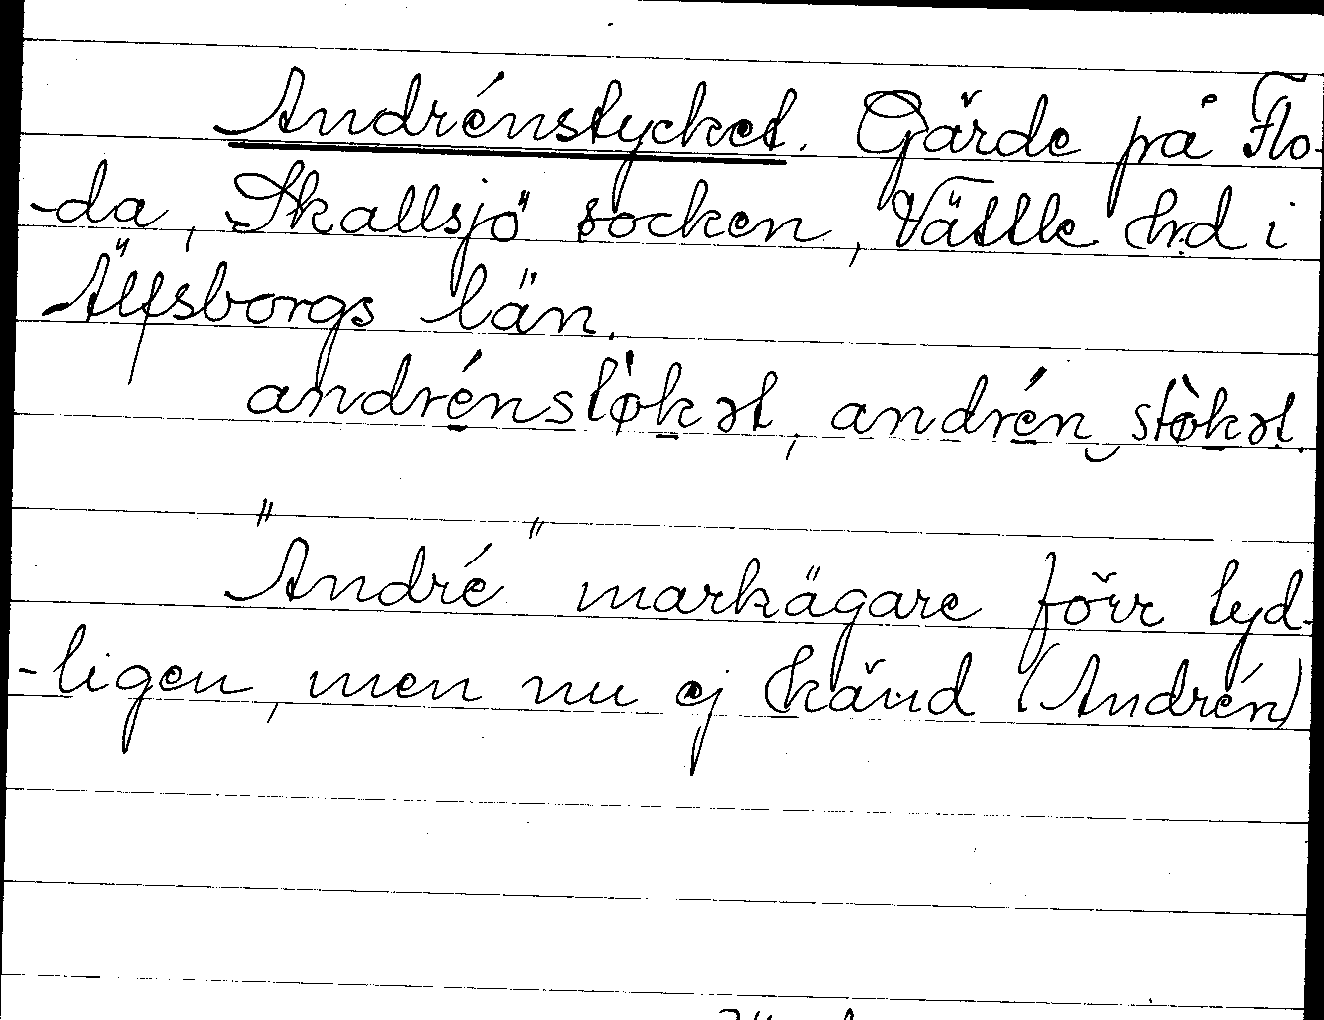 Andrénstycket. Gärde på Flo-
-da, Skallsjö socken, Vättle hd i
Älfsborgs län.
andrénstøkət, andrén stòkət.
"André" markägare förr tyd-
-ligen, men nu ej känd (Andrén)